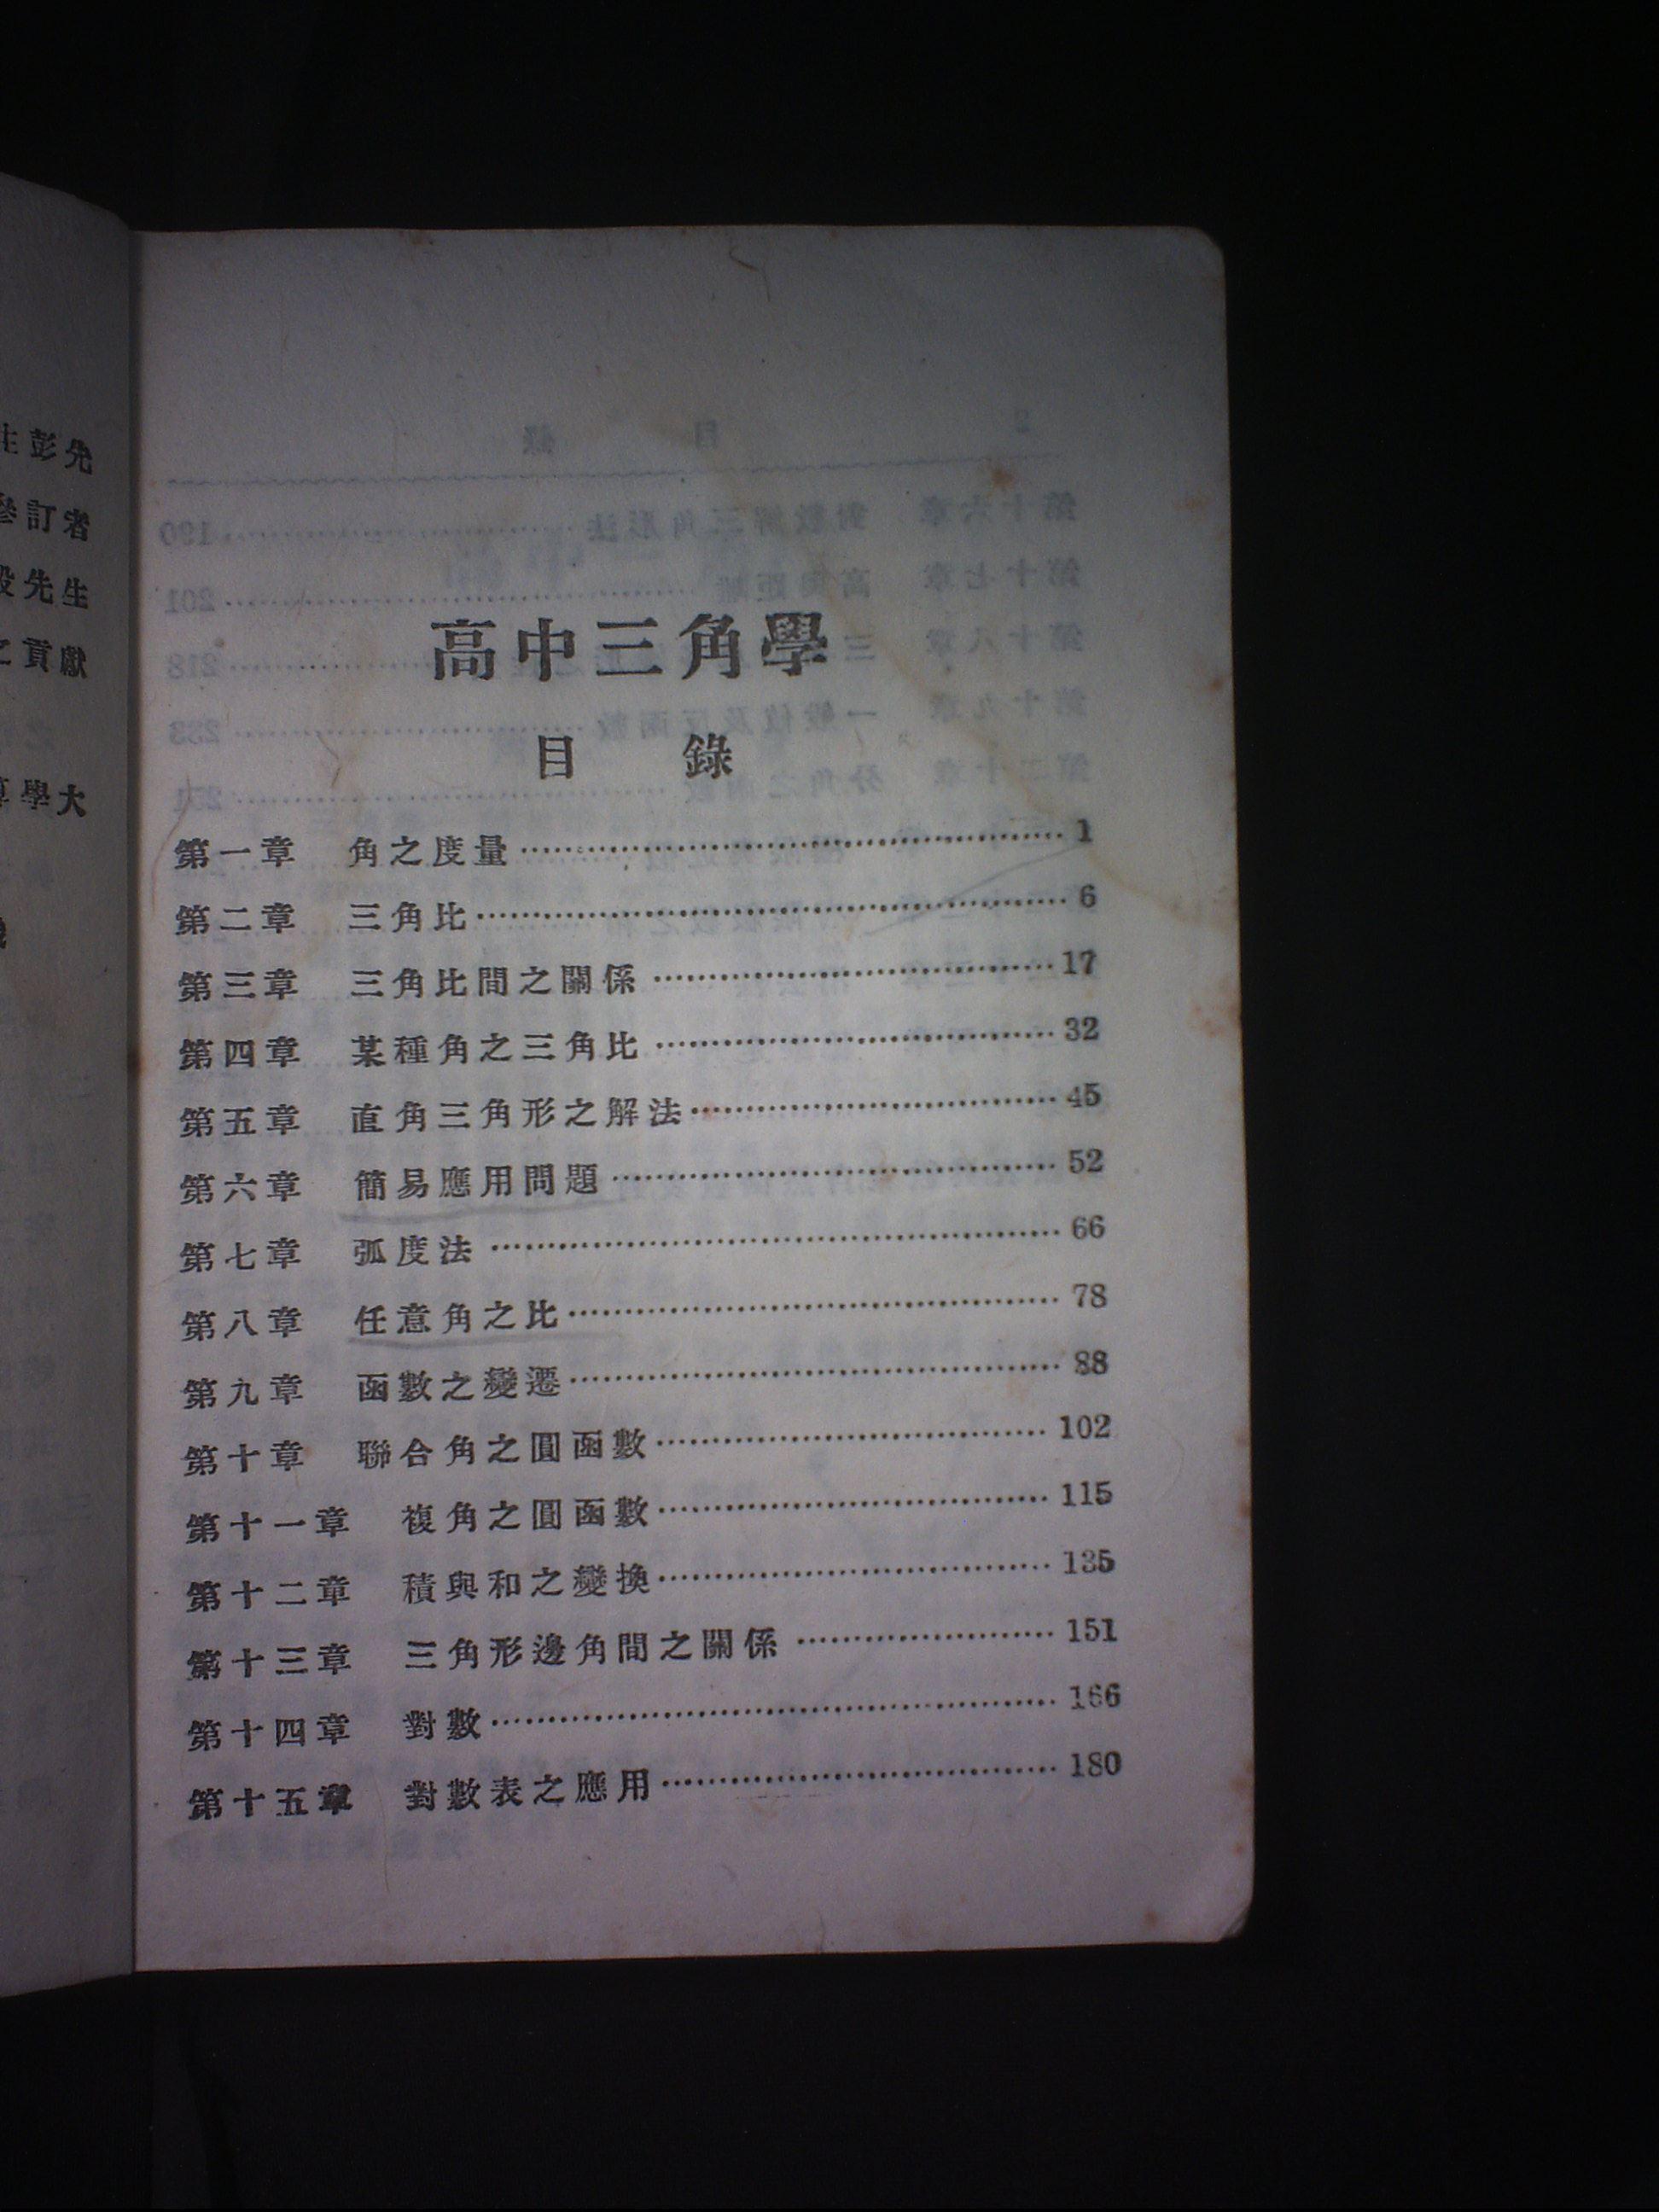 主彭先
參訂者
設先生
之貢獻
算學大
高中三角學
目 錄
第一章 角之度量……………………1
第二章 三角比……………………6
第三章 三角比間之關係……………………17
第四章 某種角之三角比……………………32
第五章 直角三角形之解法……………………45
第六章 簡易應用問題……………………52
第七章 弧度法……………………66
第八章 任意角之比……………………78
第九章 函數之變遷……………………88
第十章 聯合角之圓函數……………………102
第十一章 複角之圓函數……………………115
第十二章 積與和之變換……………………135
第十三章 三角形邊角間之關係……………………151
第十四章 對數……………………166
第十五章 對數表之應用……………………180